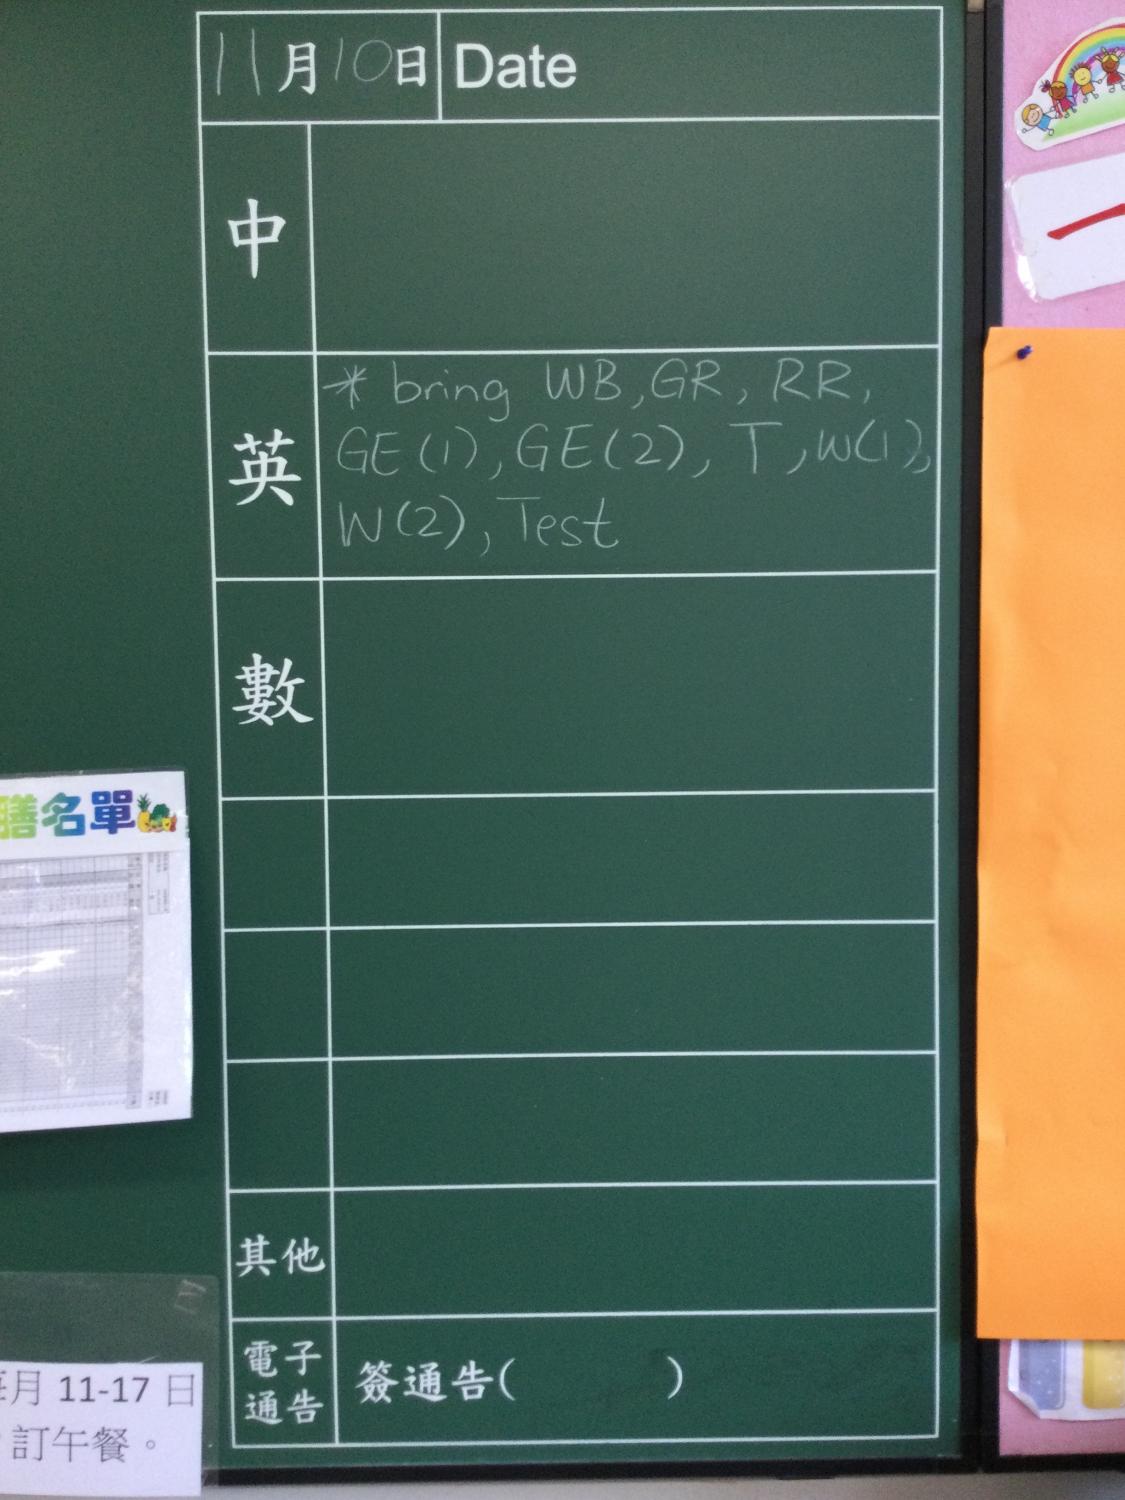 11月10日 Date
中
英
* bring WB, GR, RR,
GE(1), GE(2), T, W(1),
W(2), Test
數
其他
電子
通告
簽通告( )
膳名單
月 11-17 日
訂午餐。
一